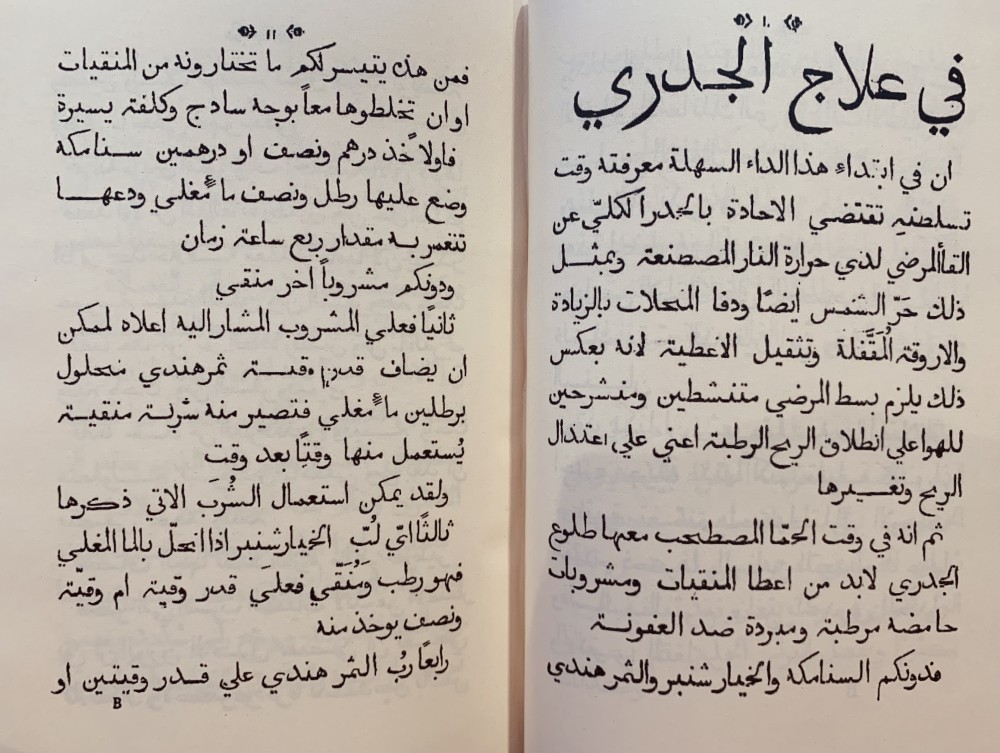 ١٠
في علاج الجدري
ان في ابتداء هذا الداء السهلة معرفته وقت
تسلطنه تقتضي الاحادة بالحذر الكليّ عن
القا المرضي لدي حرارة النار المصطنعة وبمثل
ذلك حَرّ الشمس ايضًا ودفا المحلات بالزيادة
والاروقة المُقَفَّلة وتثقيل الاغطية لانه بعكس
ذلك يلزم بسط المرضي متنشطين ومنشرحين
للهوا علي انطلاق الريح الرطبة اعني علي اعتدال
الريح وتغييرها
ثم انه في وقت الحمّا المصطحب معها طلوع
الجدري لابد من اعطا المنقيات ومشروبات
حامضه مرطبة ومبردة ضد العفونة
فدونكم السنامكه والخيار شنبر والثمر هندي
١١
فمن هذه يتيسر لكم ما تختارونه من المنقيات
او ان تخلطوها معاً بوجه سادج وكلفته يسيرة
فاولاً خذ درهم ونصف او درهمين سنامكه
وضع عليها رطل ونصف ماء مُغلي ودعها
تتغمر به مقدار ربع ساعة زمان
ودونكم مشروباً اخر منقي
ثانيًا فعلي المشروب المشار اليه اعلاه لممكن
ان يضاف قدر وقية ثمر هندي محلول
برطلين ماء مُغلي فتصير منه شربة منقية
يُستعمل منها وقتًا بعد وقت
ولقد يمكن استعمال الشُرَب الاتي ذكرها
ثالثًا ايّ لُبّ الخيار شنبر اذا انحلّ بالما المغلي
فهو رطب ومُنَقّي فعلَي قدر وقية ام وقيّة
ونصف يوخذ منه
رابعًا رُب الثمر هندي علي قدر وقيتين او
B